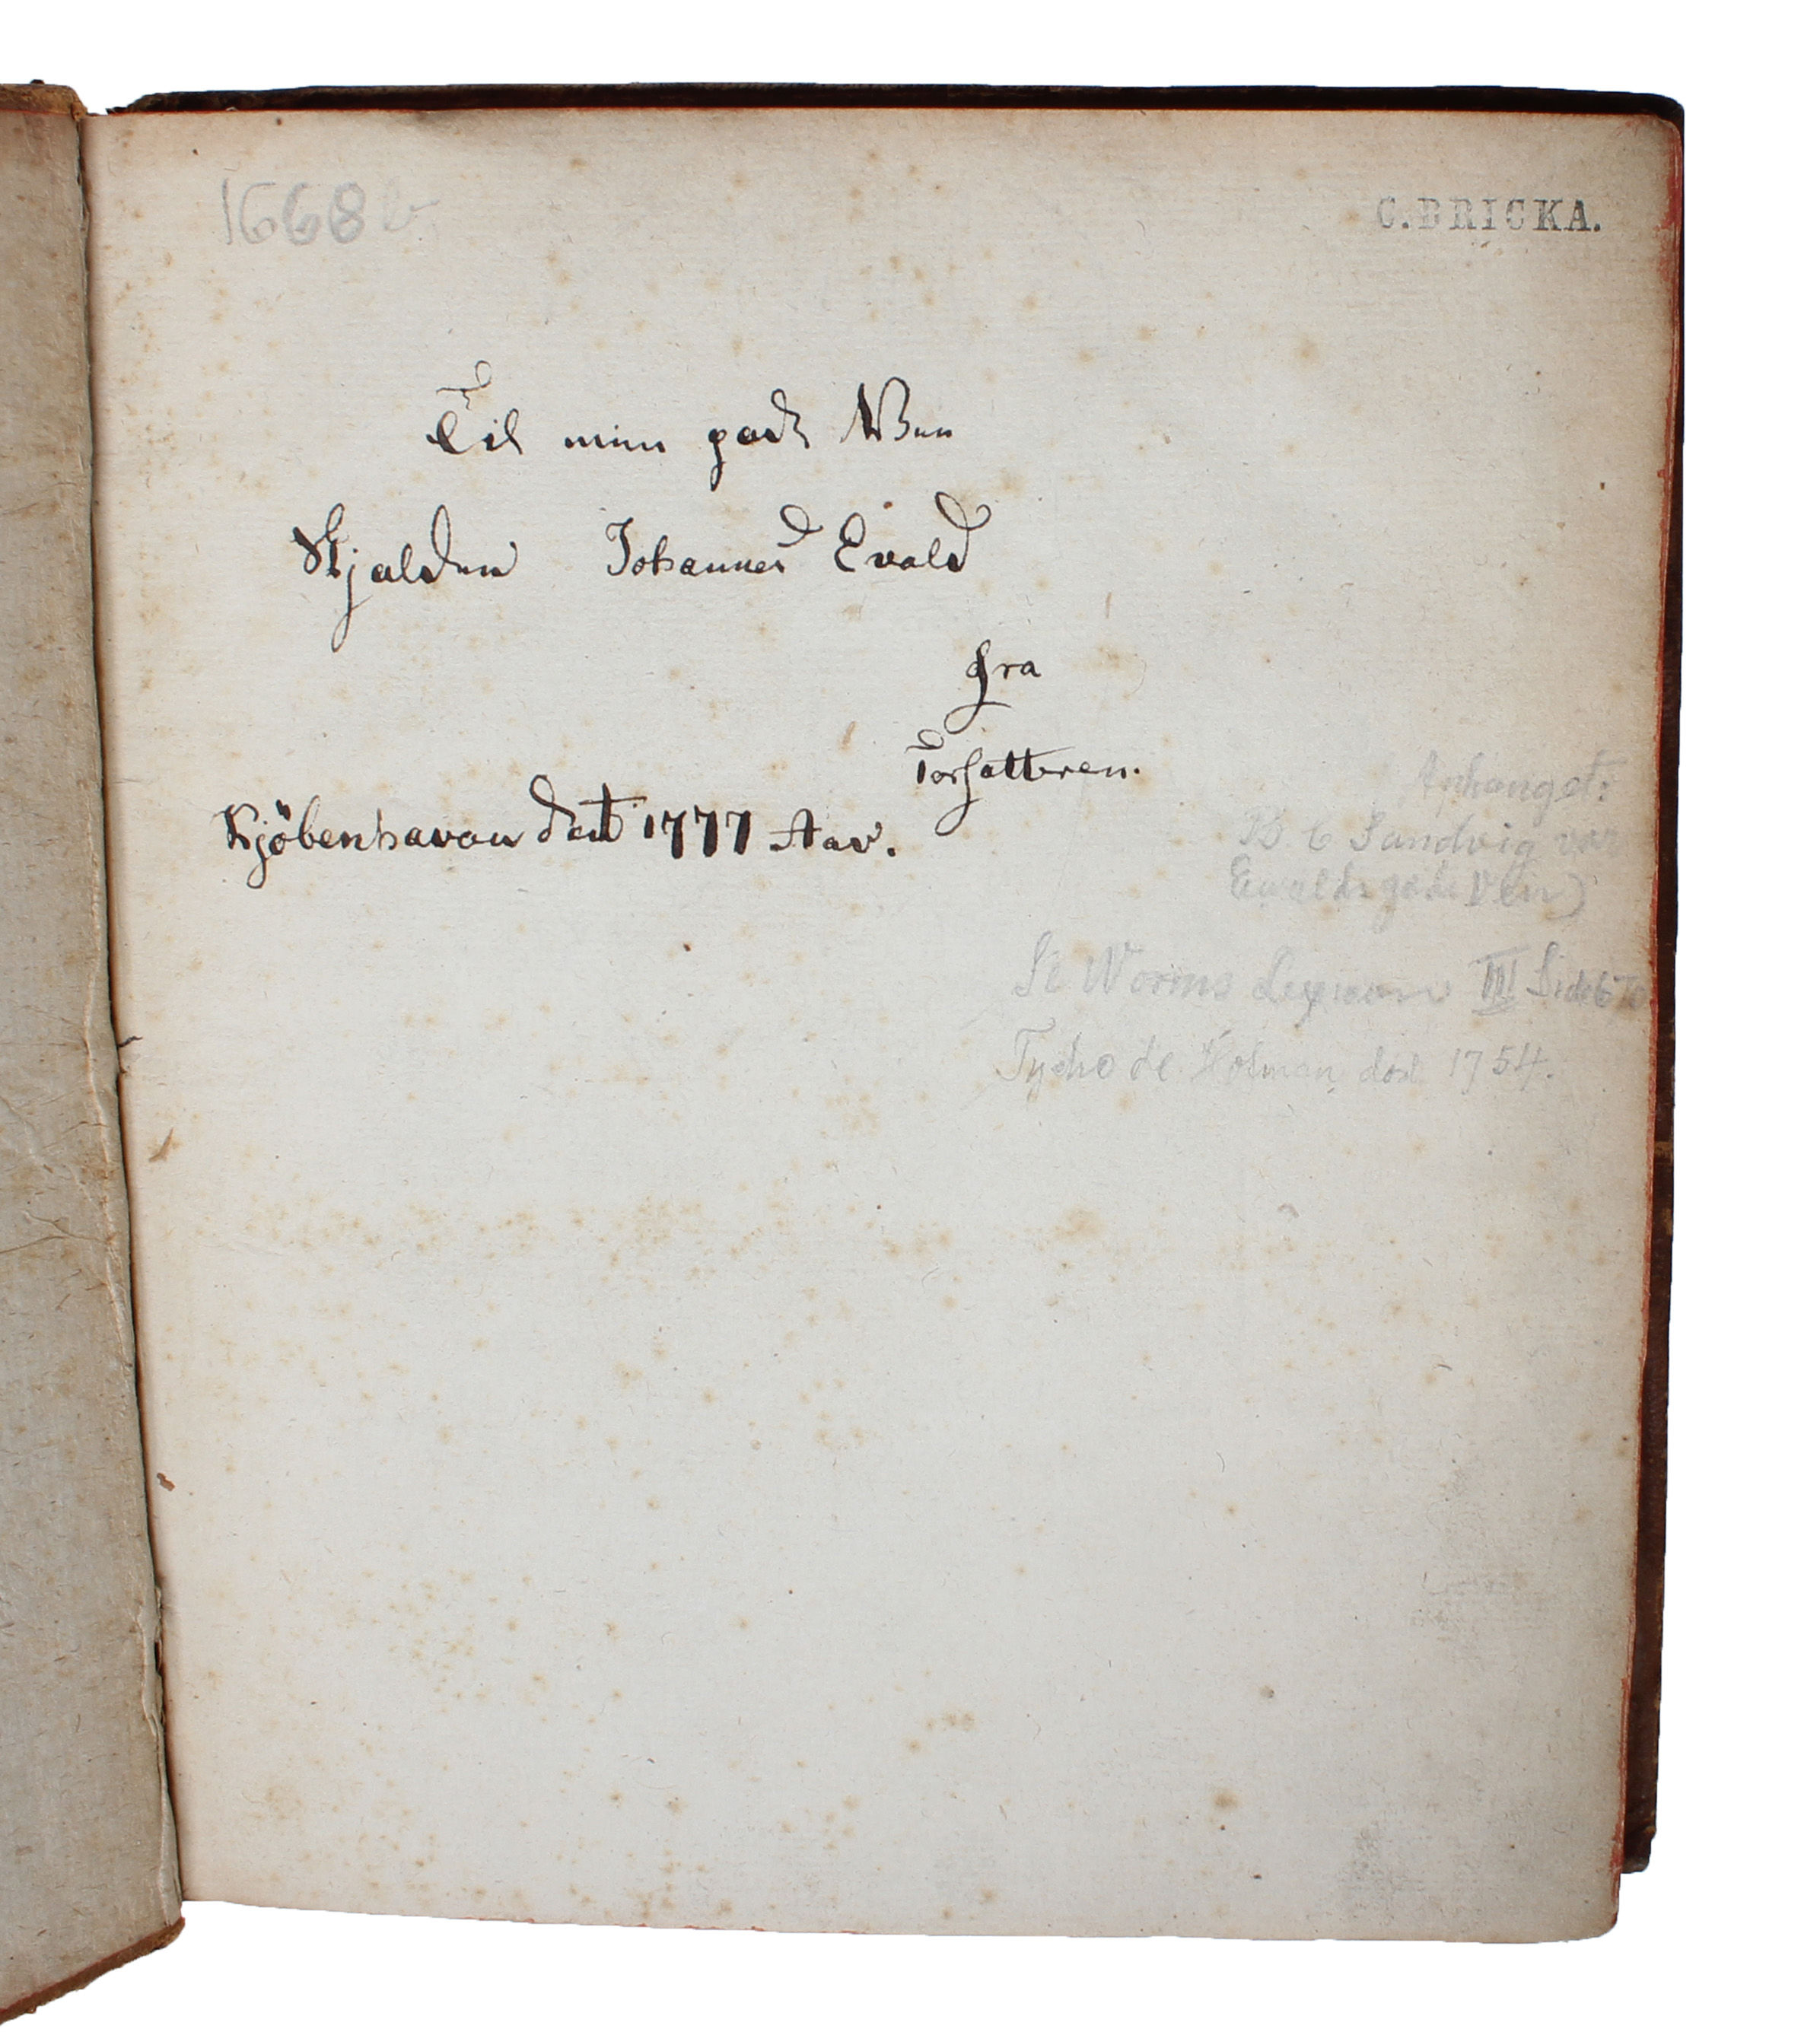 1668 b
C. BRICKA.
Til min gode Ven
Skjalden Johannes Evald
fra
Forfatteren.
Kjöbenhavn dat 1777 Aar.
B C Sandvig var
Ewalds gode Ven)
Worms Lexicon III Side
Tycho de Hofman död 1754.